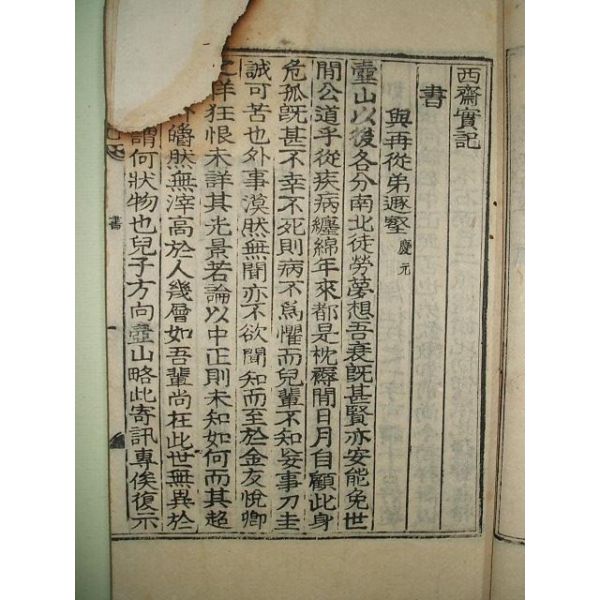 西齋實記
書
與再從弟遯壑 慶元
壺山以後各分南北徒勞夢想吾衰旣甚賢亦安能免世
間公道乎從疾病纏綿年來都是枕褥間日月自顧此身
危孤旣甚不幸不死則病不爲懼而兒輩不知妄事刀圭
誠可苦也外事漠然無聞亦不欲聞知而至於金友悅卿
之佯狂恨未詳其光景若論以中正則未知如何而其超
然無滓高於人幾層如吾輩尙在此世無異於
謂何狀物也兒子方向壺山略此寄訊專俟復示
書